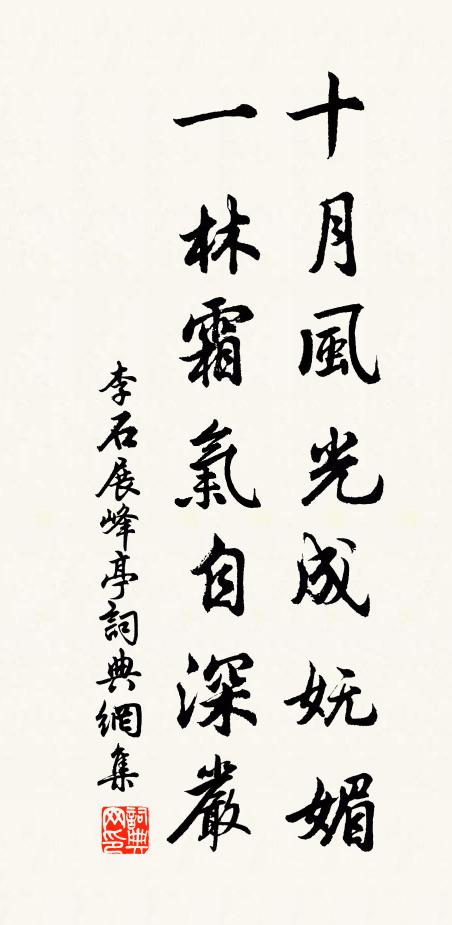 十月風光成妩媚
一林霜氣自深嚴
李石展峰亭詞典網集
詞典
网印